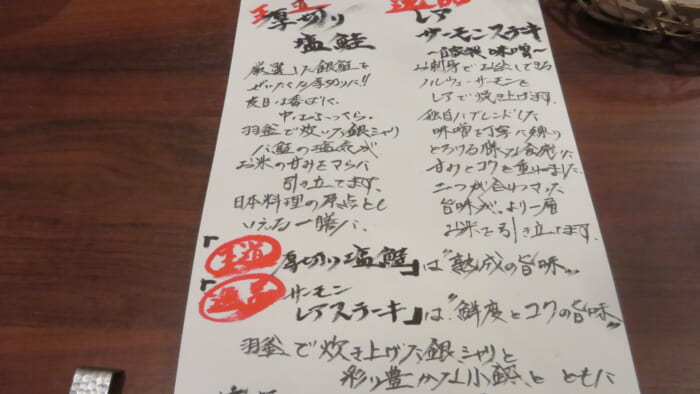 王道
厚切り
塩鮭
厳選した銀鮭を
ぜいたくな厚切りに!!
皮目は香ばしく、
中はふっくら。
羽釜で炊いた銀シャリ
に鮭の塩気が
お米の甘みをさらに
引き立てます。
日本料理の原点とも
いえる一膳に。
逸品
レア
サーモンステキ
〜自家製味噌〜
お刺身でお出しできる
ノルウェーサーモンを
レアで焼き上げます。
独自にブレンドした
味噌を丁寧に練り
とろける豚な食感に
甘みとコクを重ねました。
二つが合わさった
旨味が、より一層
お米を引き立てます。
「王道 厚切り塩鮭」は“熟成の旨味”
「逸品 サーモン
レアステーキ」は“鮮度とコクの旨味”
羽釜で炊き上げた銀シャリと
彩り豊かな小鎮と ともに